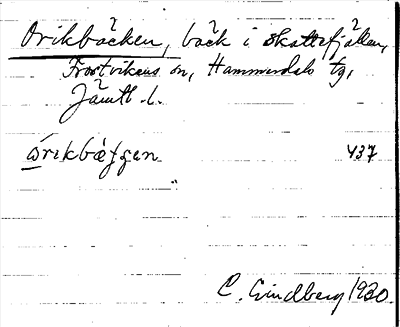 Orikbäcken, bäck i skattefjällen,
Frostvikens sn, Hammerdals tg,
Jämtl. l.
437
C. Lindberg 1930.